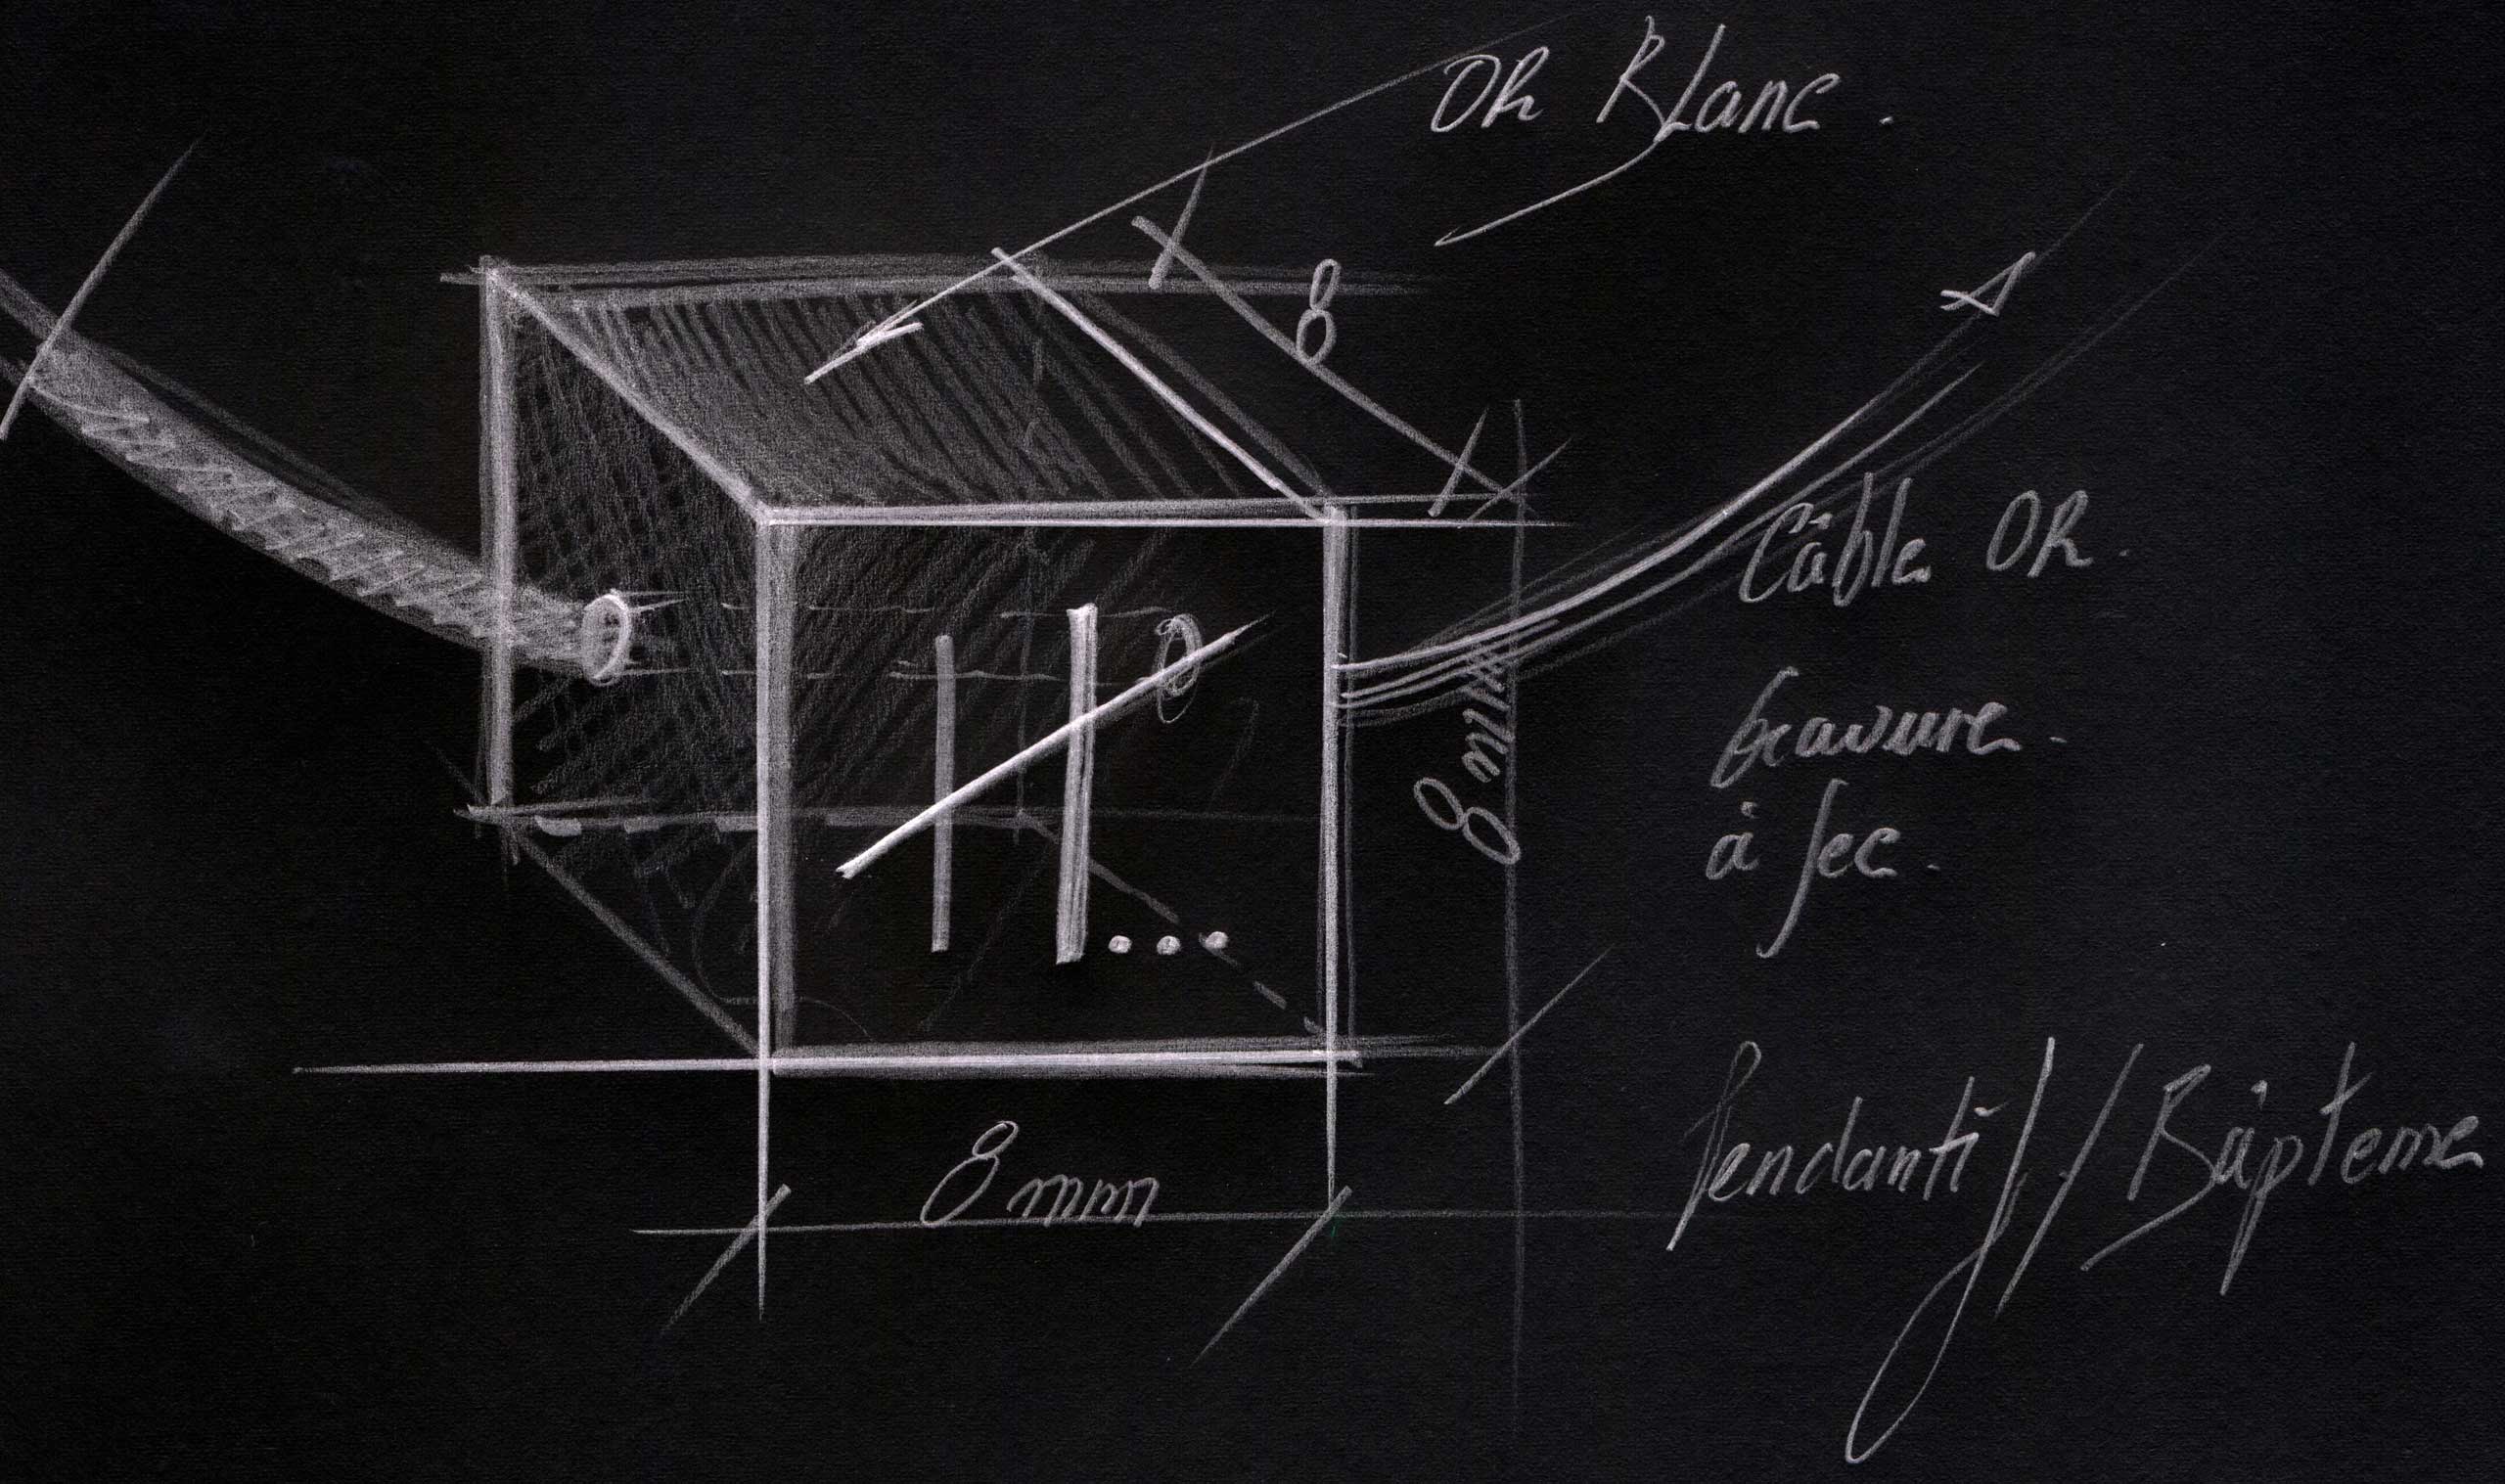 OR Blanc.
8
Câble OR.
8 mm
Gravure.
à sec.
H...
8 mm
Pendantif // Bâpteme